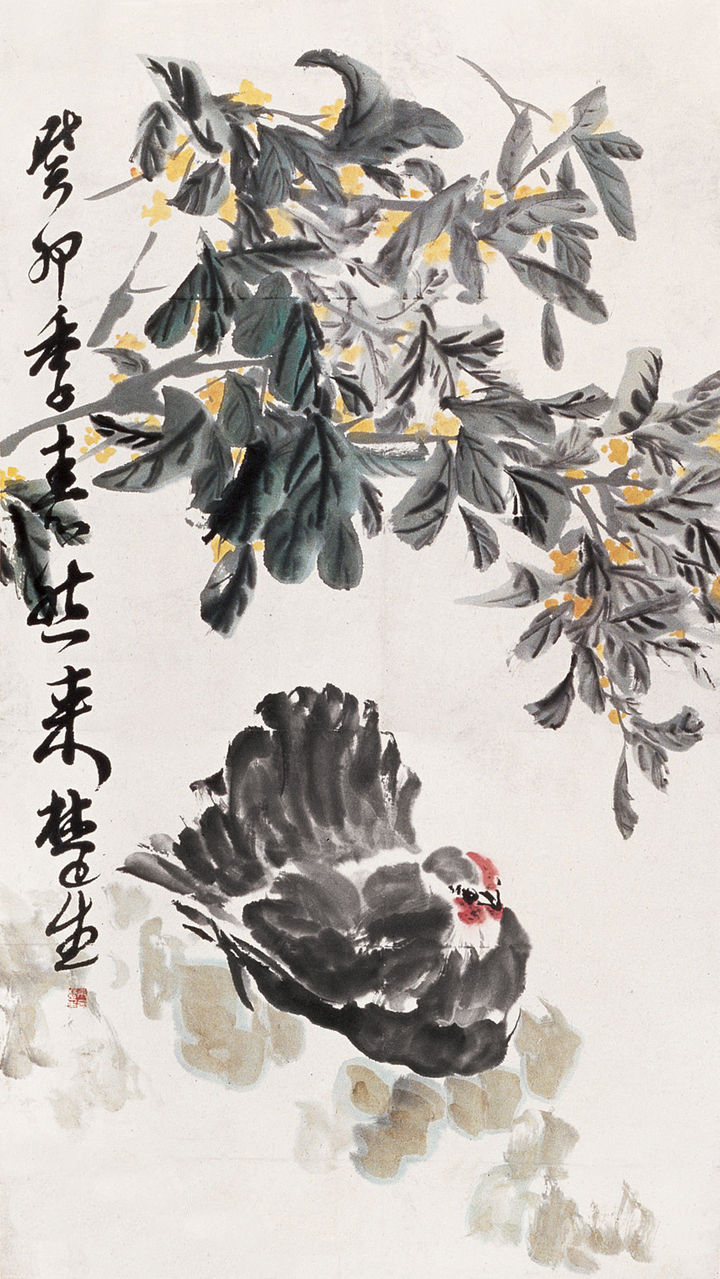 癸卯季春然来楚生